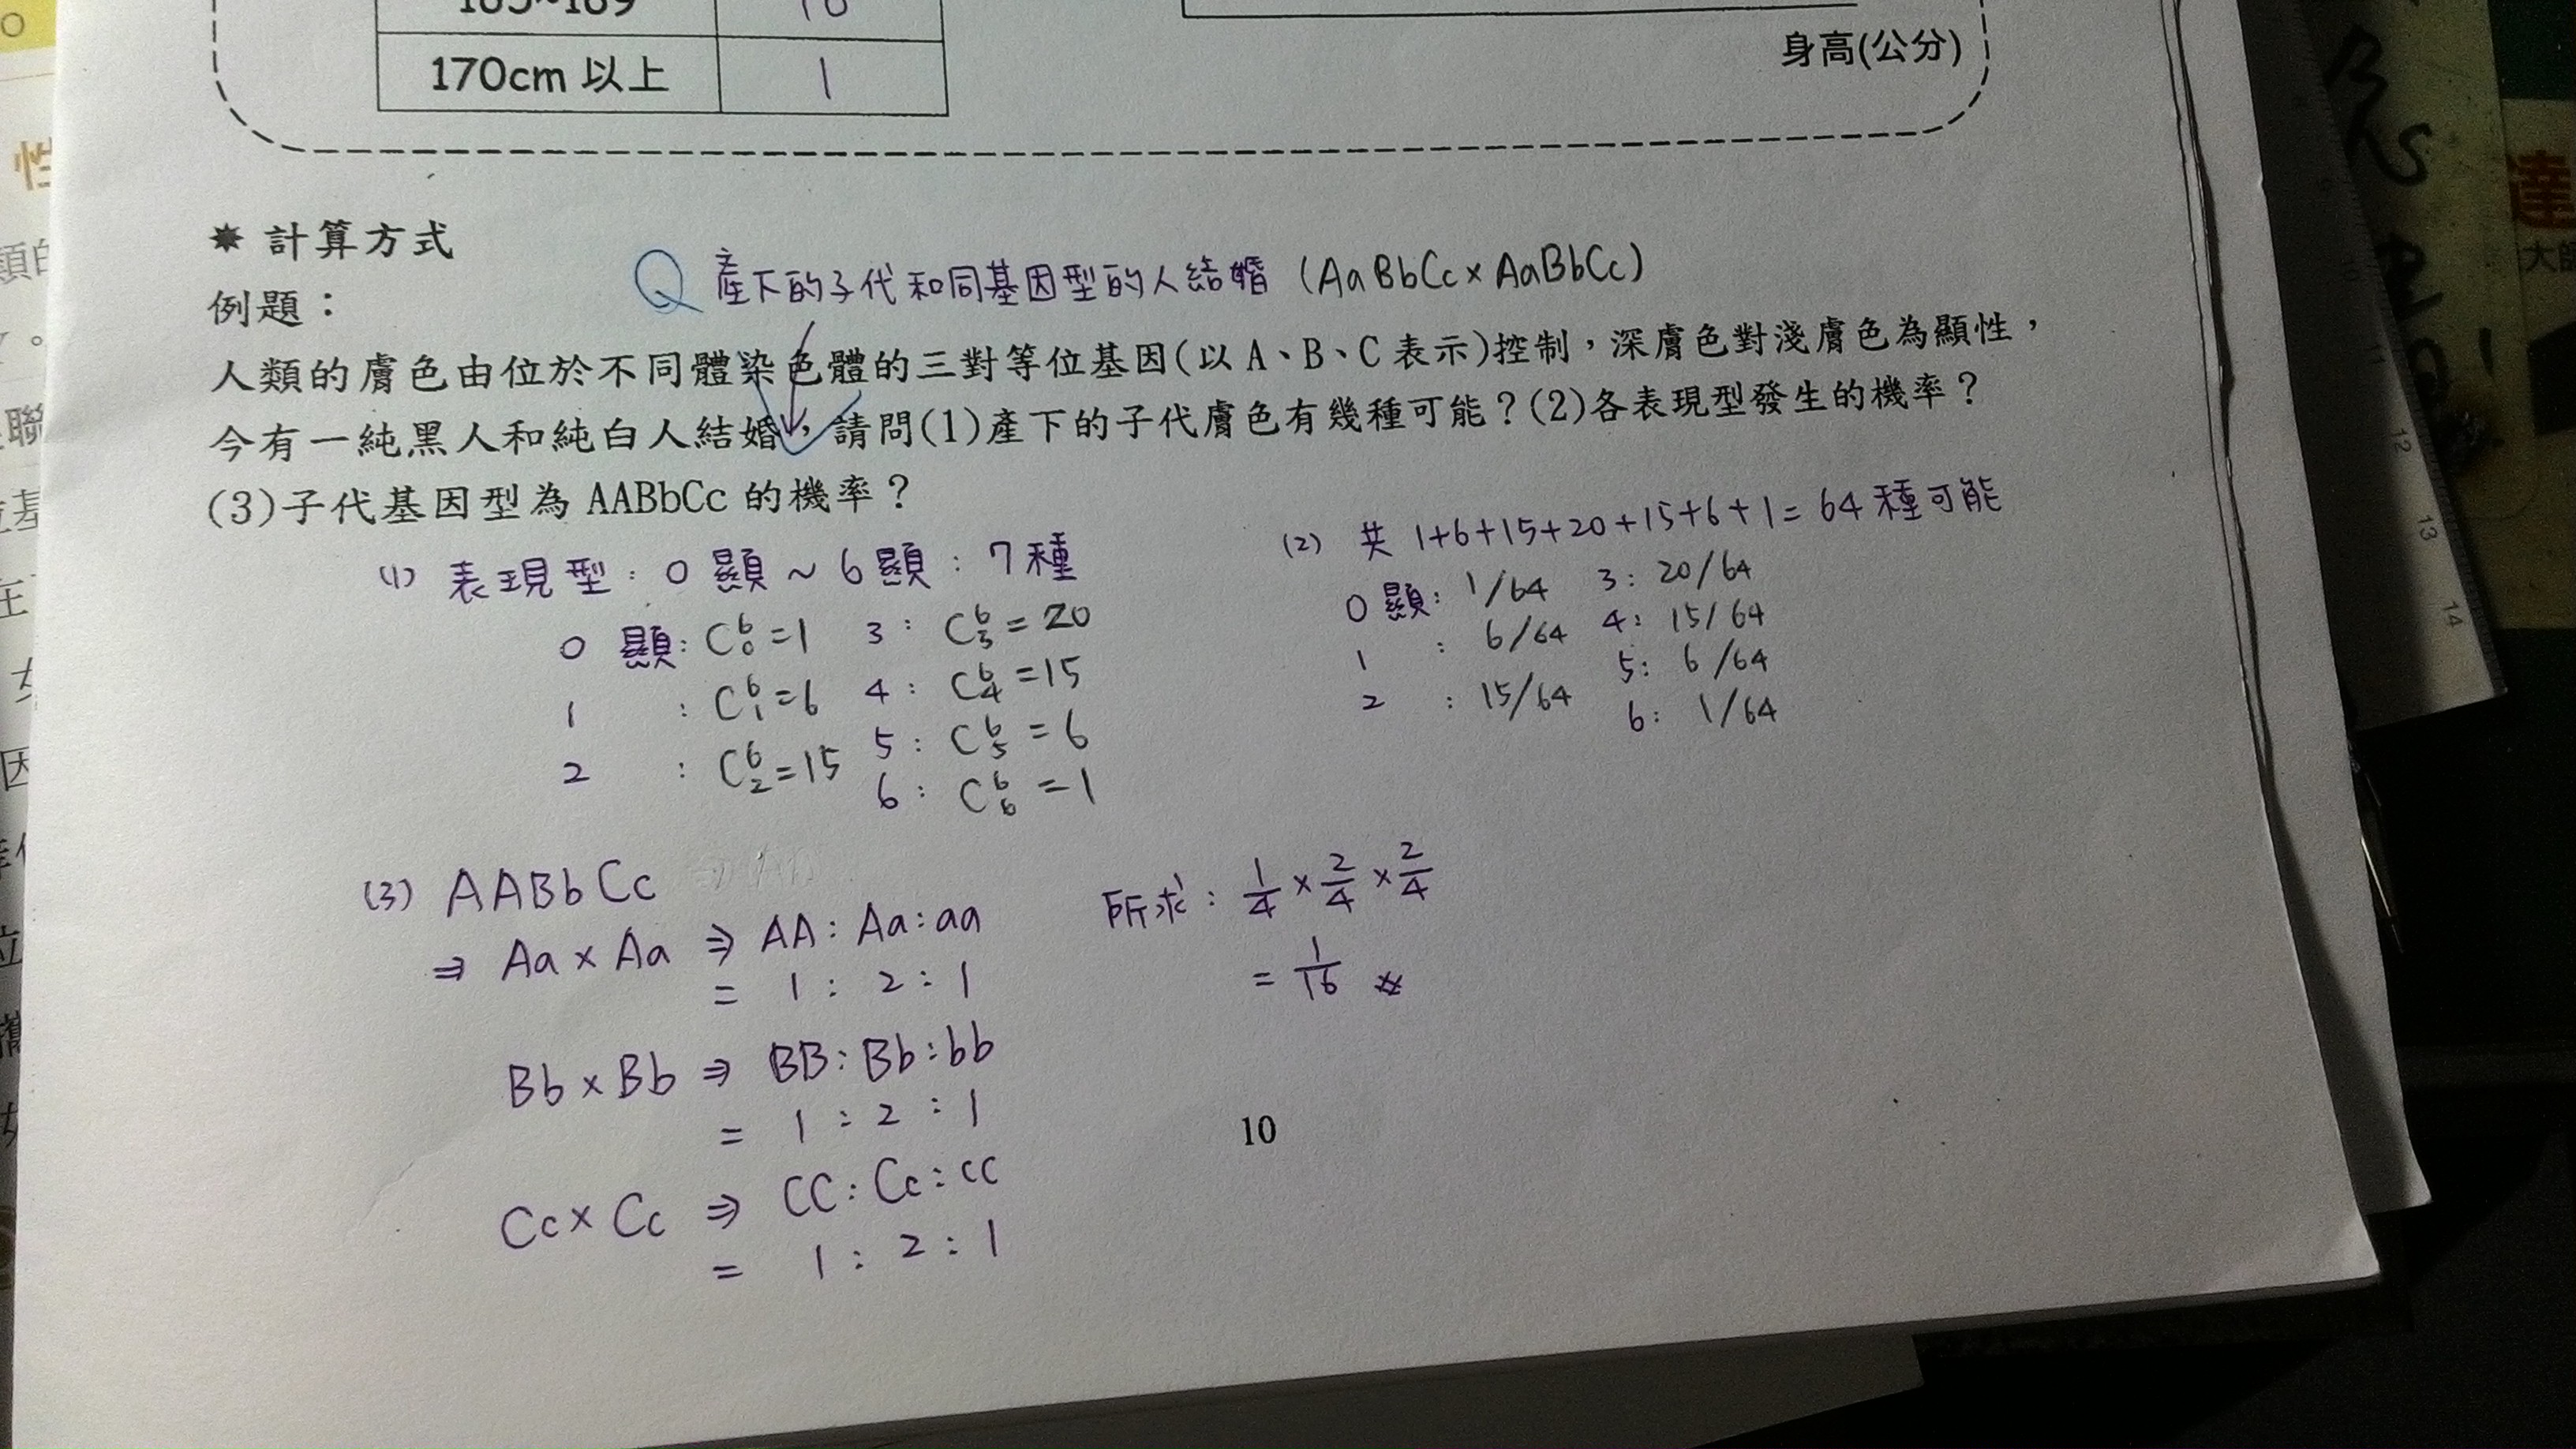 170cm 以上
1
身高(公分)
計算方式
例題：
Q 產下的子代和同基因型的人結婚 (AaBbCc×AaBbCc)
人類的膚色由位於不同體染色體的三對等位基因(以 A、B、C 表示)控制，深膚色對淺膚色為顯性，
今有一純黑人和純白人結婚，請問(1)產下的子代膚色有幾種可能？(2)各表現型發生的機率？
(3)子代基因型為 AABbCc 的機率？
(1) 表現型：0 顯 ~ 6 顯：7 種
0 顯：C⁶₀=1 3：C⁶₃=20
1 ：C⁶₁=6 4：C⁶₄=15
2 ：C⁶₂=15 5：C⁶₅=6
6：C⁶₆=1
(2) 共 1+6+15+20+15+6+1=64 種可能
0 顯：1/64 3：20/64
1 ：6/64 4：15/64
2 ：15/64 5：6/64
6：1/64
(3) AABbCc
⇒ Aa×Aa ⇒ AA:Aa:aa
= 1:2:1
Bb×Bb ⇒ BB:Bb:bb
= 1:2:1
Cc×Cc ⇒ CC:Cc:cc
= 1:2:1
所求：1/4×2/4×2/4
= 1/16
10
達
大師
12
13
14